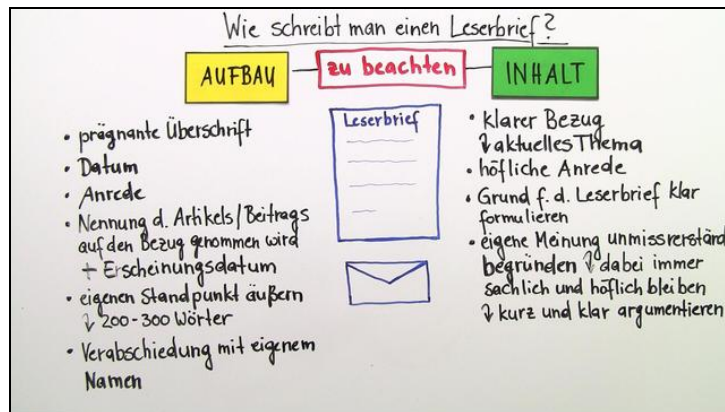 Wie schreibt man einen Leserbrief?
AUFBAU
zu beachten
INHALT
• prägnante Überschrift
• Datum
• Anrede
• Nennung d. Artikels/Beitrags
auf den Bezug genommen wird
+ Erscheinungsdatum
• eigenen Standpunkt äußern
↓ 200-300 Wörter
• Verabschiedung mit eigenem
Namen
Leserbrief
• klarer Bezug
↓ aktuelles Thema
• höfliche Anrede
• Grund f. d. Leserbrief klar
formulieren
• eigene Meinung unmissverständ
begründen ↓ dabei immer
sachlich und höflich bleiben
↓ kurz und klar argumentieren